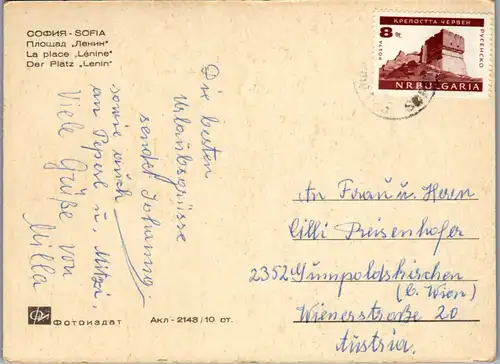 СОФИЯ - SOFIA
Площад „Ленин“
La place „Lénine“
Der Platz „Lenin“
8 ст.
КРЕПОСТТА ЧЕРВЕН
РУСЕНСКО
POSTA
NR BULGARIA
Die besten
Urlaubsgrüsse
sendet Johanna
sowie auch
an Peperl u. Mitzi.
Viele Grüße von
Milla
An Frau u. Herrn
Cilli Preisenhofer
2352 Gumpoldskirchen
(b. Wien)
Wienerstraße 20
Austria.
ФОТОИЗДАТ
Акл - 2148/10 ст.